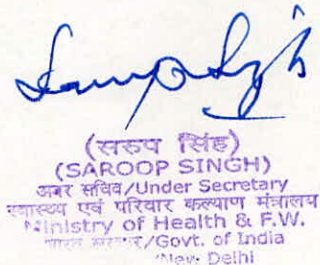 (सरुप सिंह)
(SAROOP SINGH)
अवर सचिव/Under Secretary
स्वास्थ्य एवं परिवार कल्याण मंत्रालय
Ministry of Health & F.W.
भारत सरकार/Govt. of India
/New Delhi